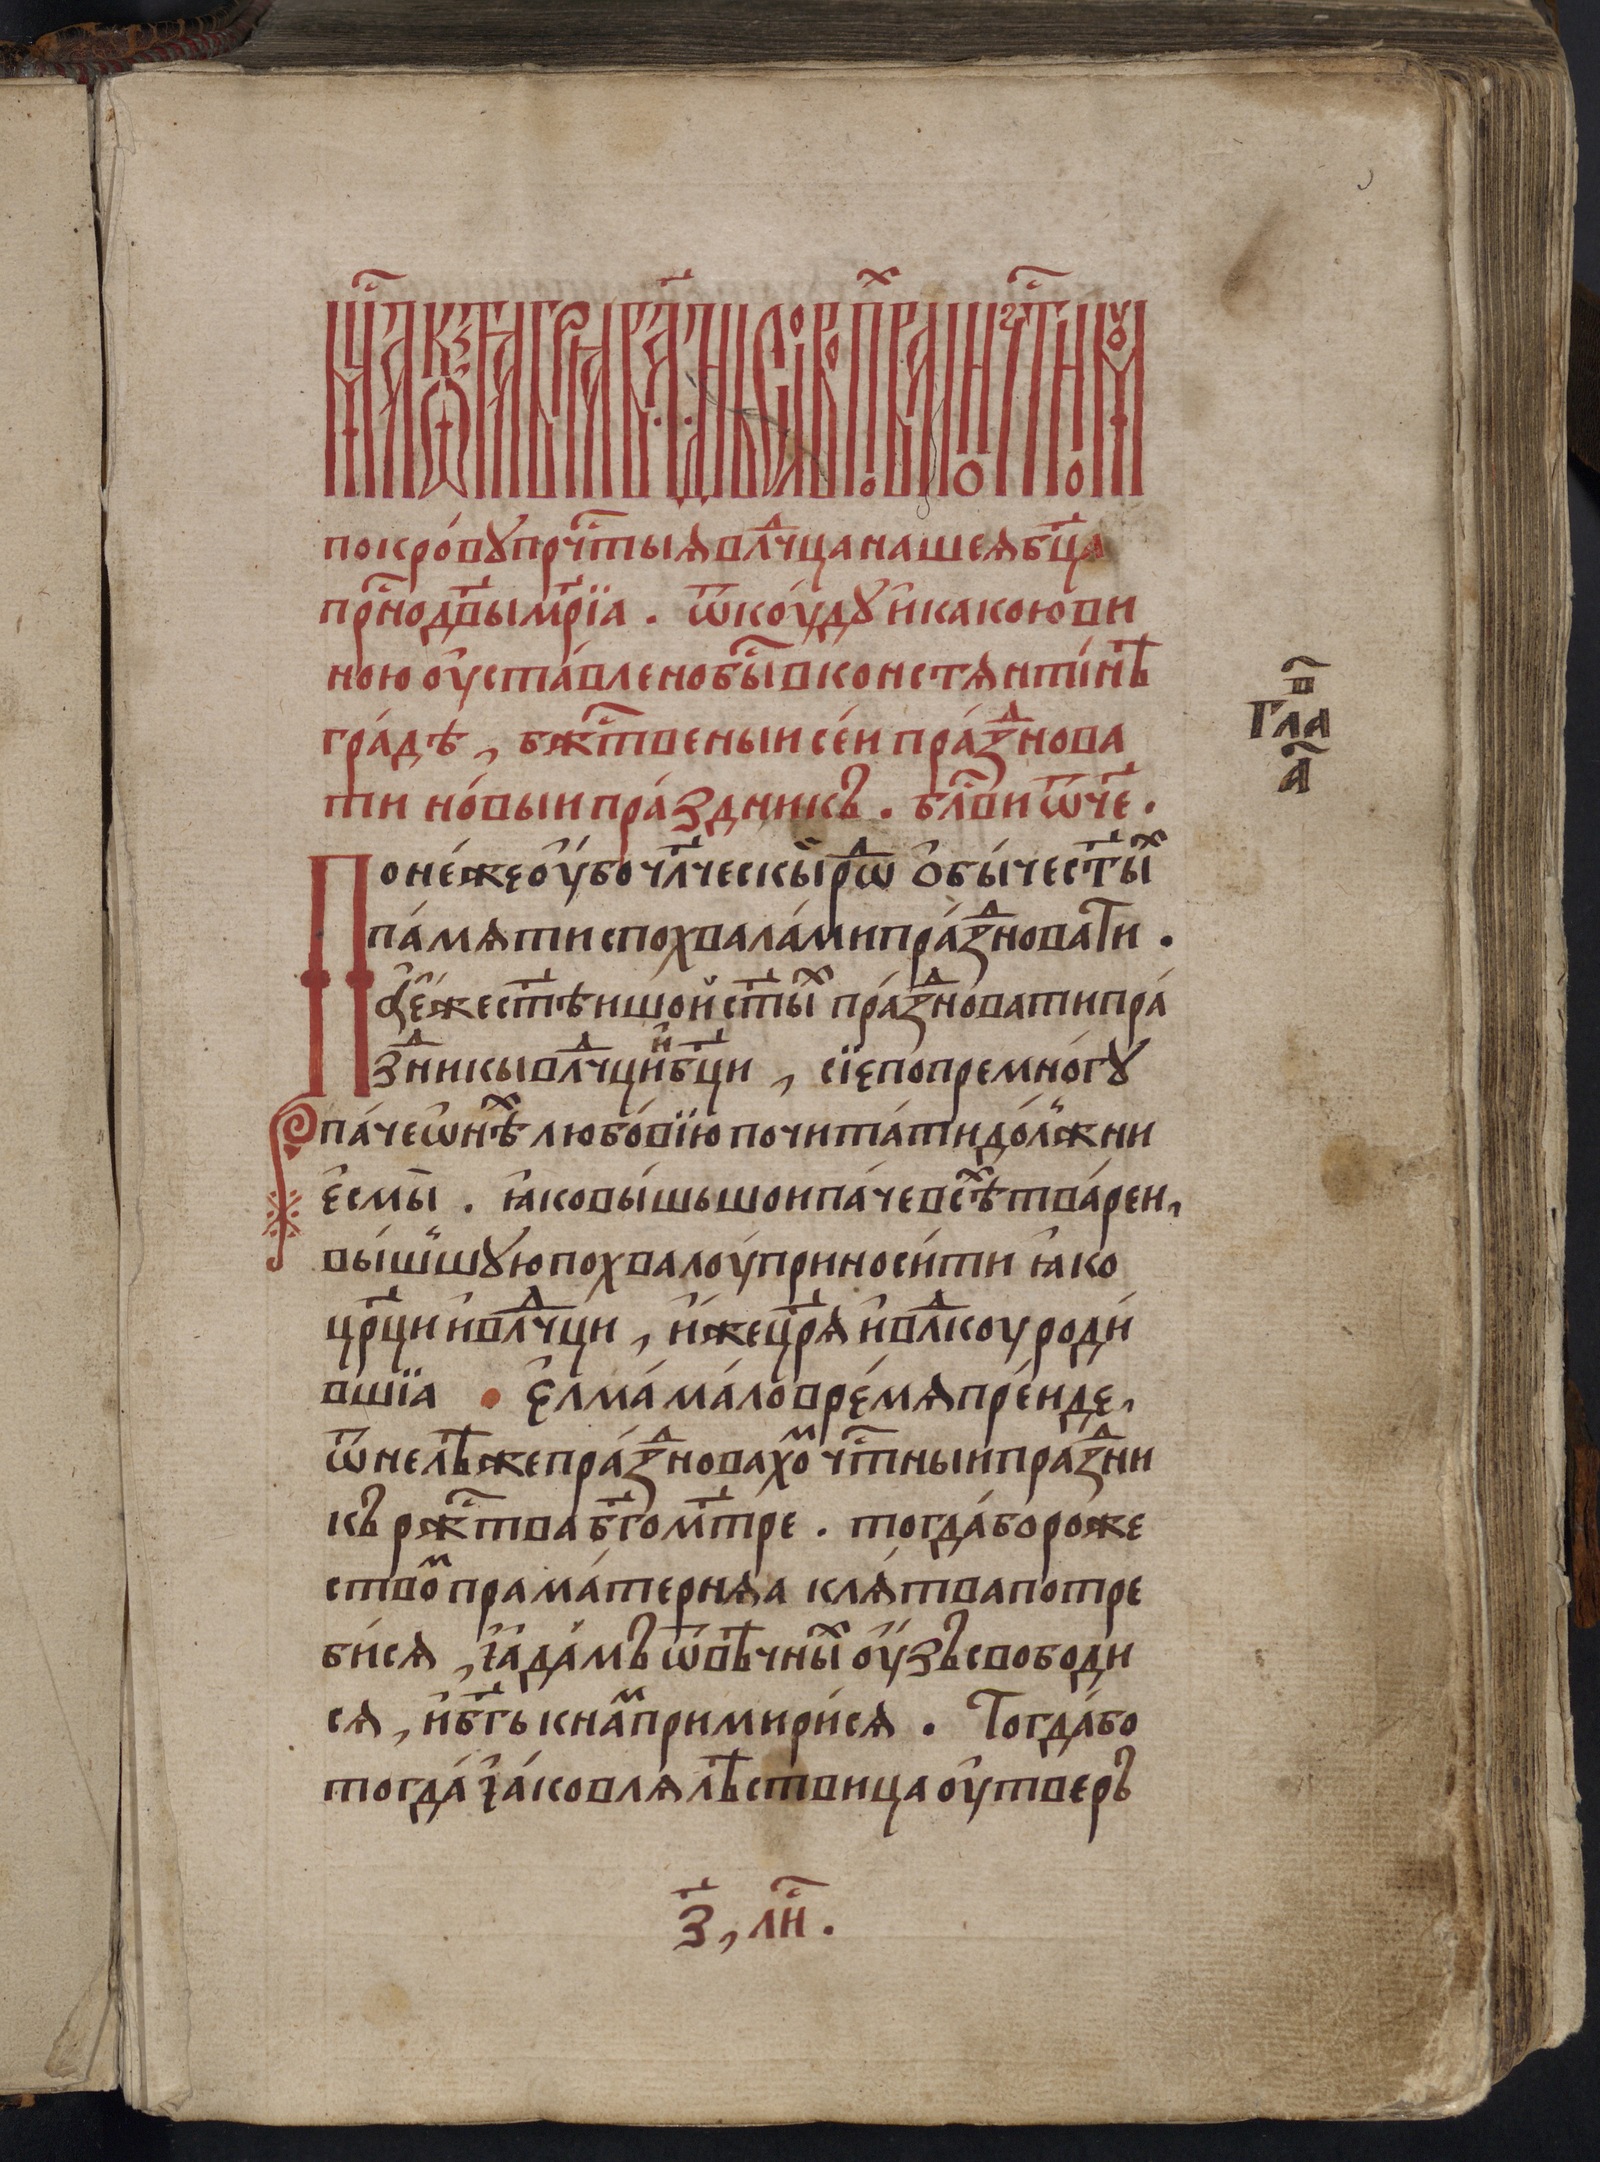 покро́вꙋ прⷭ҇тыѧ влⷣчца нашеѧ бц҃а
прⷭ҇нодв҃ы мр҃їа . ѿкоу́дꙋ и҆ какою ви
ною оу҆ста́влено бы́ⷭ в константі́нѣ
гра́дѣ, бж҇ⷭтвеныи се́и пра́зⷣнова
ти но́выи пра́здникъ . блⷭ҇ви ѿч҃е .
Поне́же оу҆́бо чл҃ческы́ рѡⷣ ѻ҆бы́че ст҃ыⷯ
па́мѧти с похвала́ми пра́зⷣновати .
а҆́ е҆́же ст҃ѣишой ст҃ыⷯ пра́зⷣновати пра́
зⷣникы влⷣчци и҆ бц҃и , сїе по премно́гꙋ
па́че ѡ҆нѣⷯ любо́вїю почита́ти до́лжни
є҆смы̀ . ꙗ҆ко вы́шьшои па́че всѣⷯ тва́реи,
вы́шшꙋю похвалоу́ приноси́ти ꙗ҆́ко
цр҃ци и҆ влⷣчци , и҆́же цр҃ѧ и҆ влⷣкоу роди́
вшїа • є҆лма́ ма́ло вре́мѧ пре́иде,
ѿнелѣ́же пра́зⷣновахоⷨ чⷭ҇тныи пра́зⷣни
къ ржⷭ҇тва бг҃ом҃тре . тогда́ бо роже
ствоⷨ прама́терняа клѧ́тва потре
би́сѧ , и҆ а҆да́мъ ѿ вѣ́чныⷯ оу҆́зъ свободи
сѧ , и҆ бг҃ь к наⷨ примири́сѧ . Тогда́ бо
тогда́ і҆а́ковлѧ лѣ́ствица оу҆твер
в҃
Гла
а҃
з҃ , лиⷭ҇ .